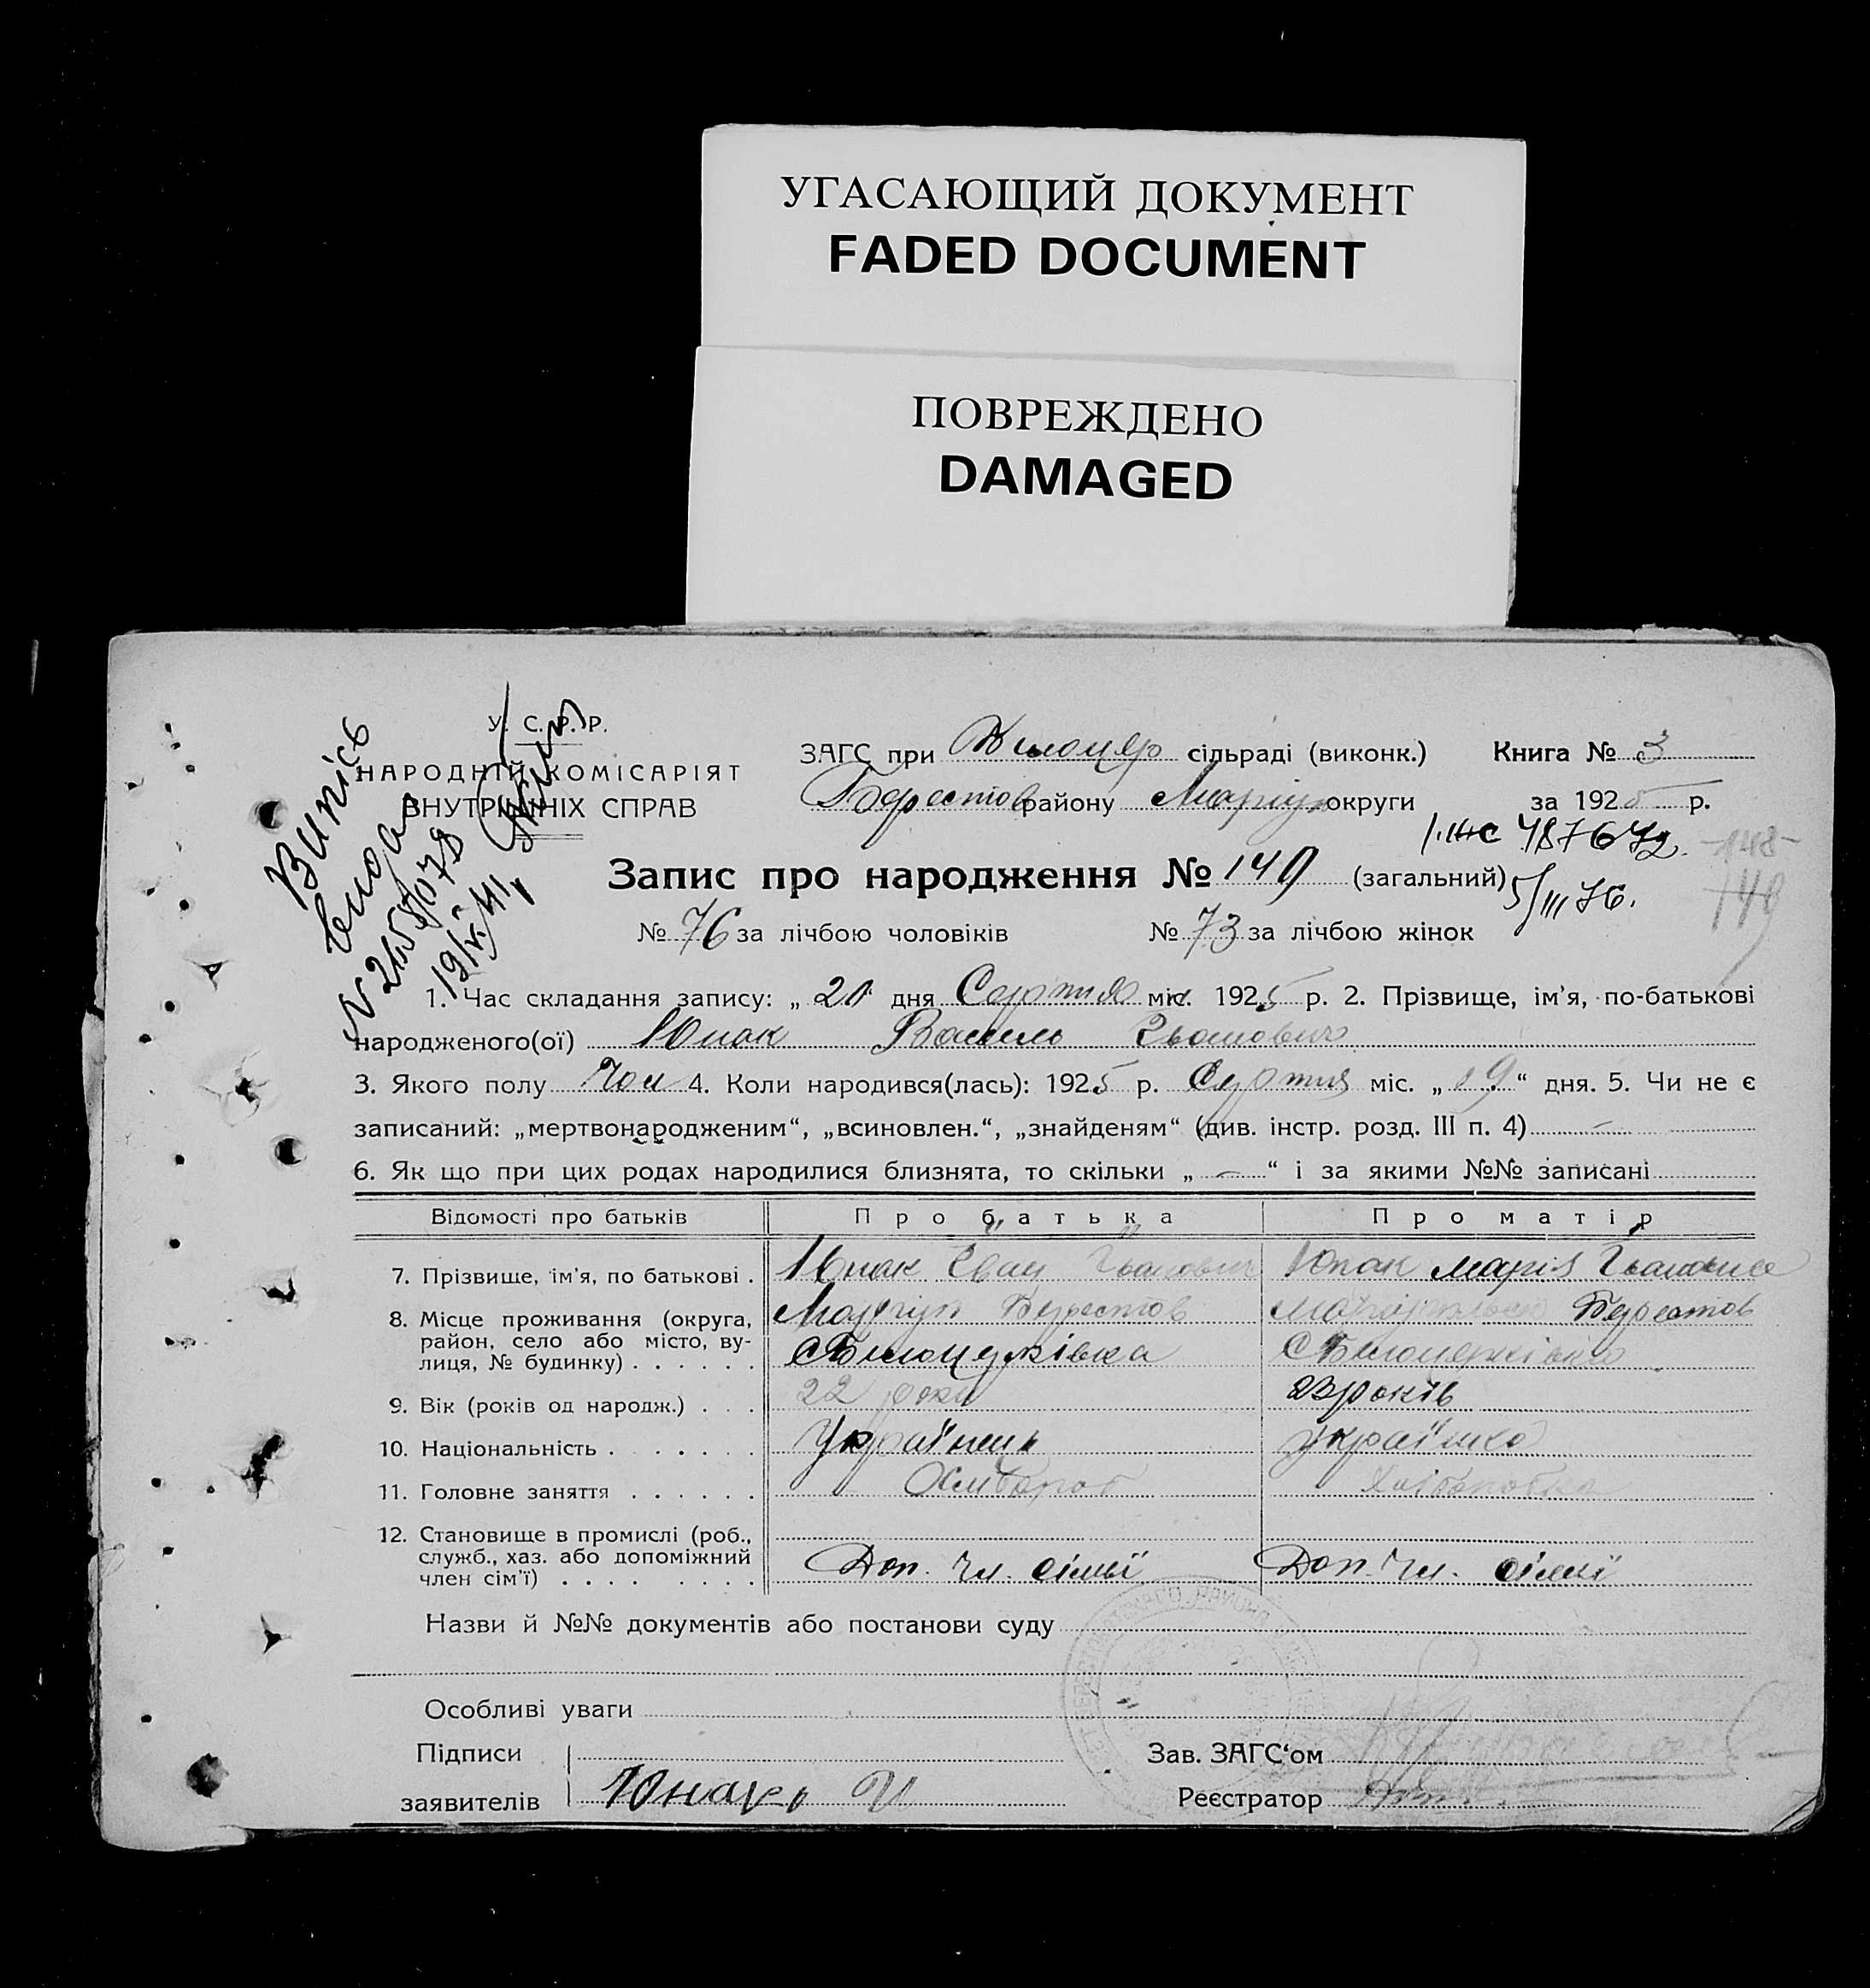 УГАСАЮЩИЙ ДОКУМЕНТ
FADED DOCUMENT
ПОВРЕЖДЕНО
DAMAGED
У. С. Р. Р.
НАРОДНІЙ КОМІСАРІЯТ
ВНУТРІШНІХ СПРАВ
Випісь
видан
19/V.41
ЗАГС при сільраді (виконк.) Книга № 3
Берестов району Маріуп округи за 1925 р.
Запис про народження № 149 (загальний)
5/III 76.
148
149
№ 76 за лічбою чоловіків № 73 за лічбою жінок
1. Час складання запису: „ дня Серпня міс. 1925 р. 2. Прізвище, ім'я, по-батькові
народженого(ої) Юнак Василь Іванович
3. Якого полу Чол 4. Коли народився(лась): 1925 р. Серпня міс. „19“ дня. 5. Чи не є
записаний: „мертвонародженим“, „всиновлен.“, „знайденям“ (див. інстр. розд. III п. 4) –
6. Як що при цих родах народилися близнята, то скільки „ – “ і за якими №№ записані
Відомості про батьків Про батька Про матір
7. Прізвище, ім'я, по батькові . Юнак Іван Іванович Юнак Марія Івановна
8. Місце проживання (округа, Маріуп Берестов Берестов
район, село або місто, ву-
лиця, № будинку) . . . . . . с Білоцерківка с Білоцерківка
9. Вік (років од народж.) . . . 22 роки 23 років
10. Національність . . . . . . Українець українка
11. Головне заняття . . . . . . Хлібороб Хліборобка
12. Становище в промислі (роб.,
служб., хаз. або допоміжний
член сім'ї) . . . . . . . . Доп. Чл. сімьї Доп. Чл. сімьї
Назви й №№ документів або постанови суду
Особливі уваги
Підписи Зав. ЗАГС'ом
заявителів Юнакъ И Реєстратор